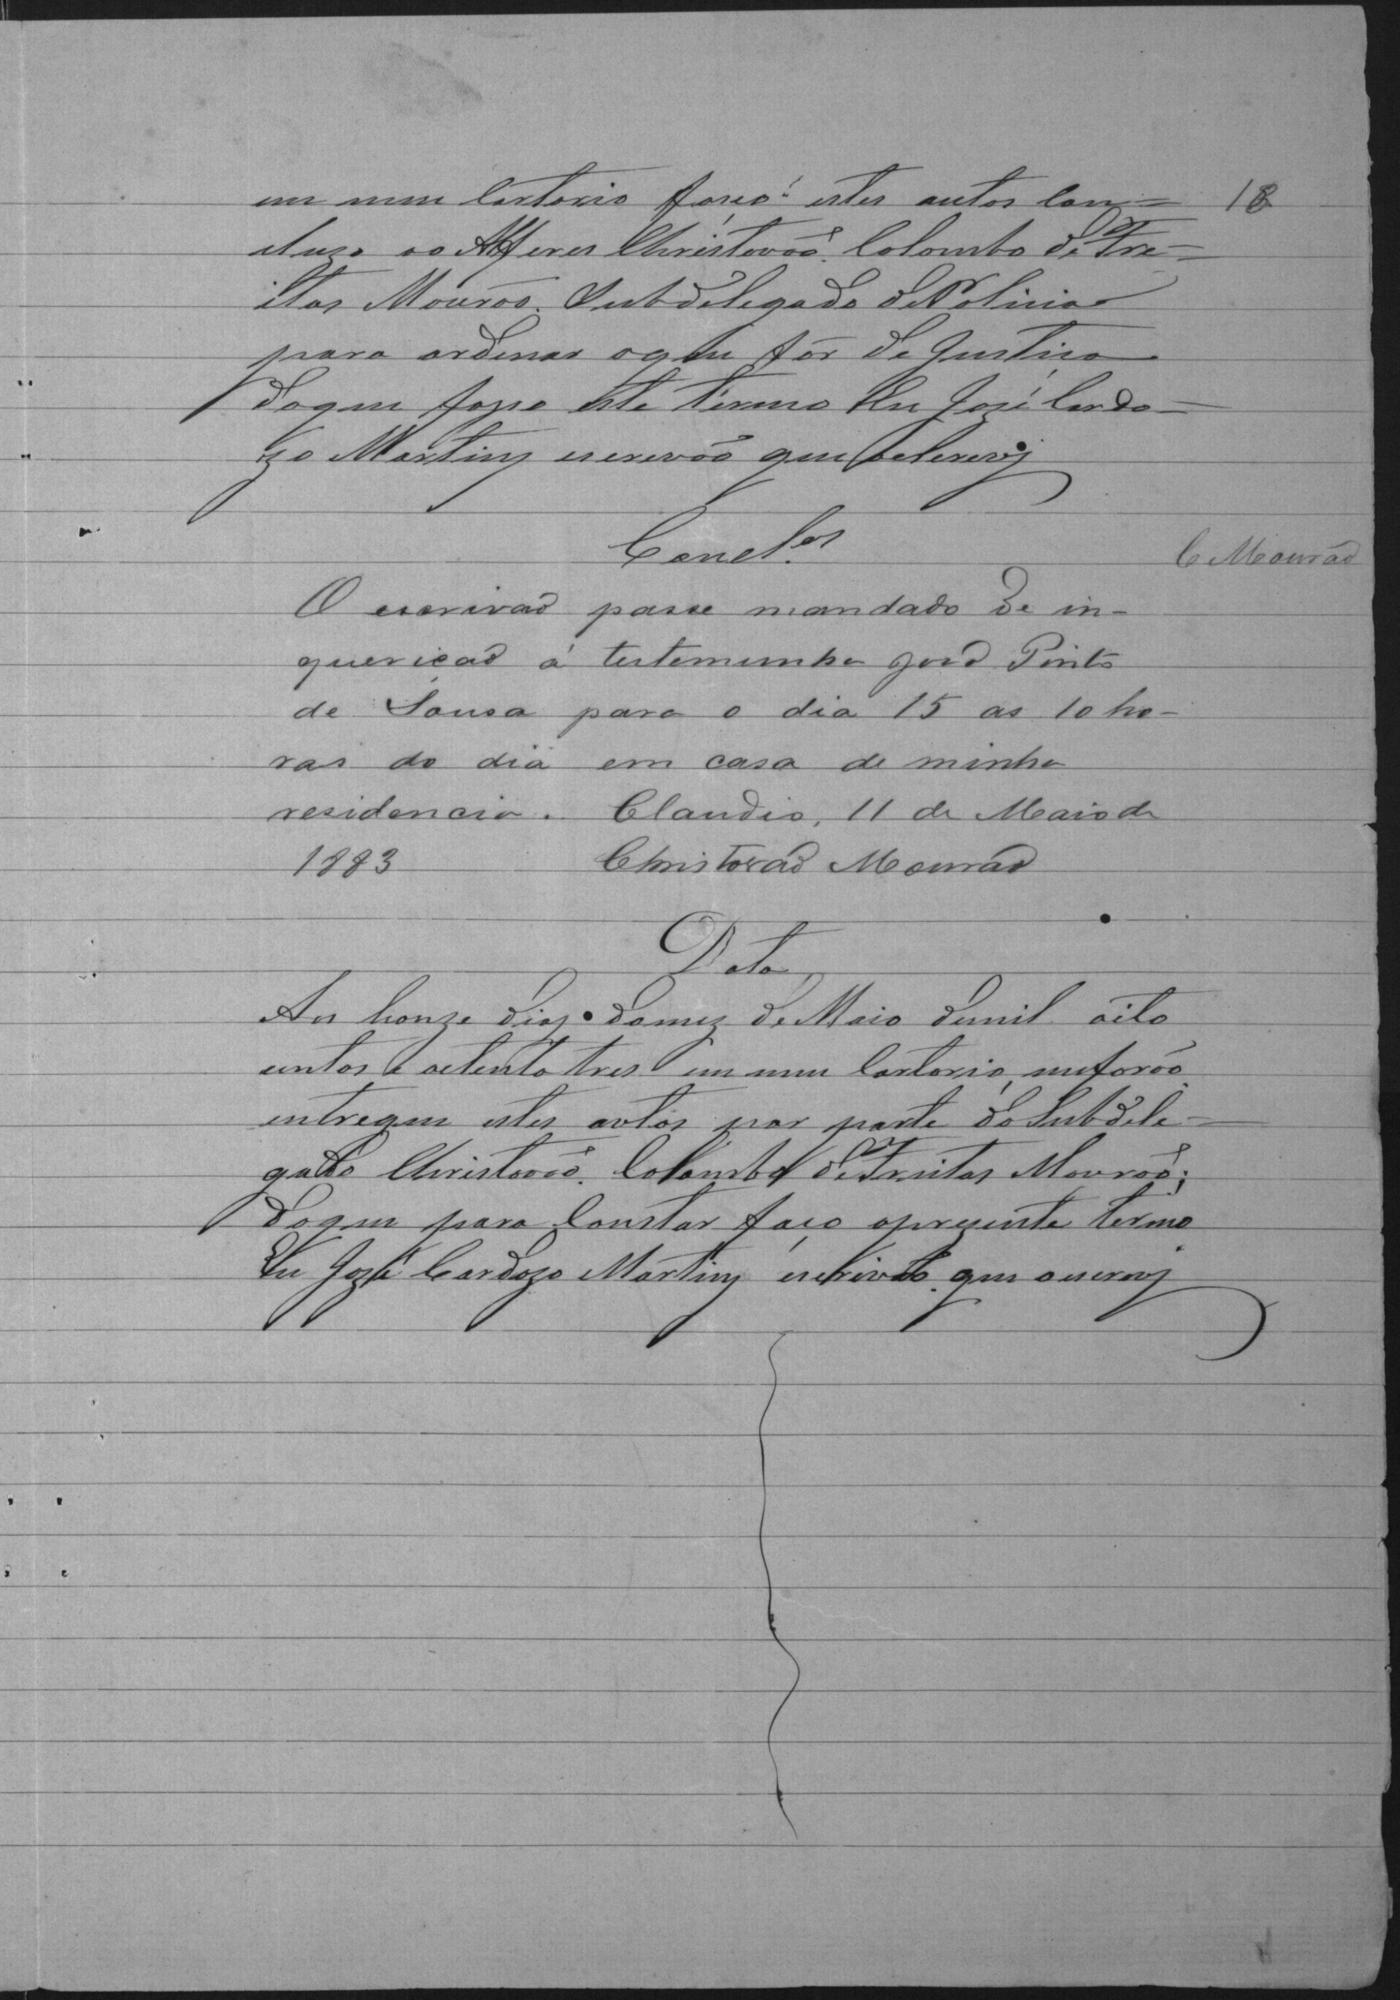 em meu Cartorio faço estes autos con=
cluzo ao Alferes Christovaõ Colombo de Fre=
itas Mouraõ Subdelegado de Policia
para ordenar oque fôr de Justica
doque fasso este termo Eu José Cardo=
zo Martins escrevaõ que escrevi
Concl.os
18
C Mourão
O escrivaõ passe mandado de in-
quericaõ á testemunha João Pinto
de Sousa para o dia 15 as 10 ho-
ras do dia em casa de minha
residencia. Claudio, 11 de Maio de
1883 Christovaõ Mouraõ
Data
Aos honze dias domez de Maio demil oito
centos e oitenta tres em meu Cartorio, meforaõ
entregue estes autos por parte do Subdele=
gado Christovaõ Colombo de Freitas Mouraõ;
doque para Constar faço oprezente termo
Eu José Cardozo Martins escrivaõ que oescrevi